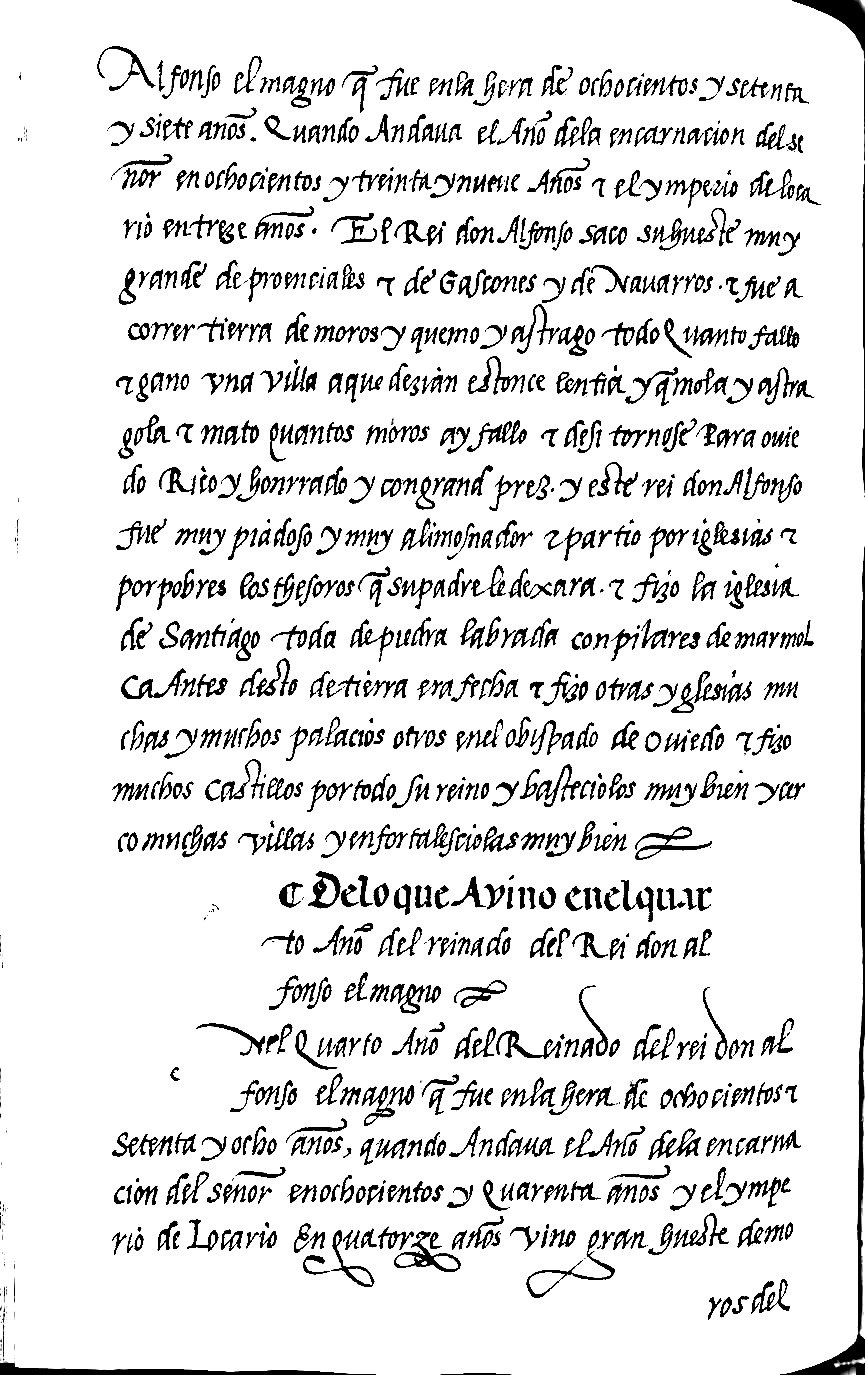 Alfonso el magno q̃ fue enla hera de ochocientos y setenta
y siete años. Quando Andaua el Año dela encarnacion del se
ñor en ochocientos y treinta y nueue Años τ el ymperio de loca
rio en treze años. El Rei don Alfonso saco su hueste muy
grande de proenciales τ de Gascones y de Nauarros. τ fue a
correr tierra de moros y quemo y astrago todo Quanto fallo
τ gano vna Villa a que dezian estonce lentia y q̃mola y astra
gola τ mato quantos moros ay fallo τ desi tornose Para ouie
do Rico y honrrado y con grand prez. y este rei don Alfonso
fue muy piadoso y muy alimosnador τ partio por iglesias τ
por pobres los thesoros q̃ su padre le dexara. τ fizo la iglesia
de Santiago toda de piedra labrada con pilares de marmol
Ca Antes desto de tierra era fecha τ fizo otras yglesias mu
chas y muchos palacios otros enel obispado de Ouiedo τ fizo
muchos Castillos por todo su reino y basteciolos muy bien y cer
co muchas villas y enfortalesciolas muy bien
¶ Delo que Avino enel quar
to Año del reinado del Rei don al
fonso el magno
Nel Quarto Año del Reinado del rei don al
e
fonso el magno q̃ fue enla hera de ochocientos τ
Setenta y ocho años, quando Andaua el Año dela encarna
cion del señor en ochocientos y Quarenta años y el ympe
rio de Locario En quatorze años vino gran hueste de mo
ros del